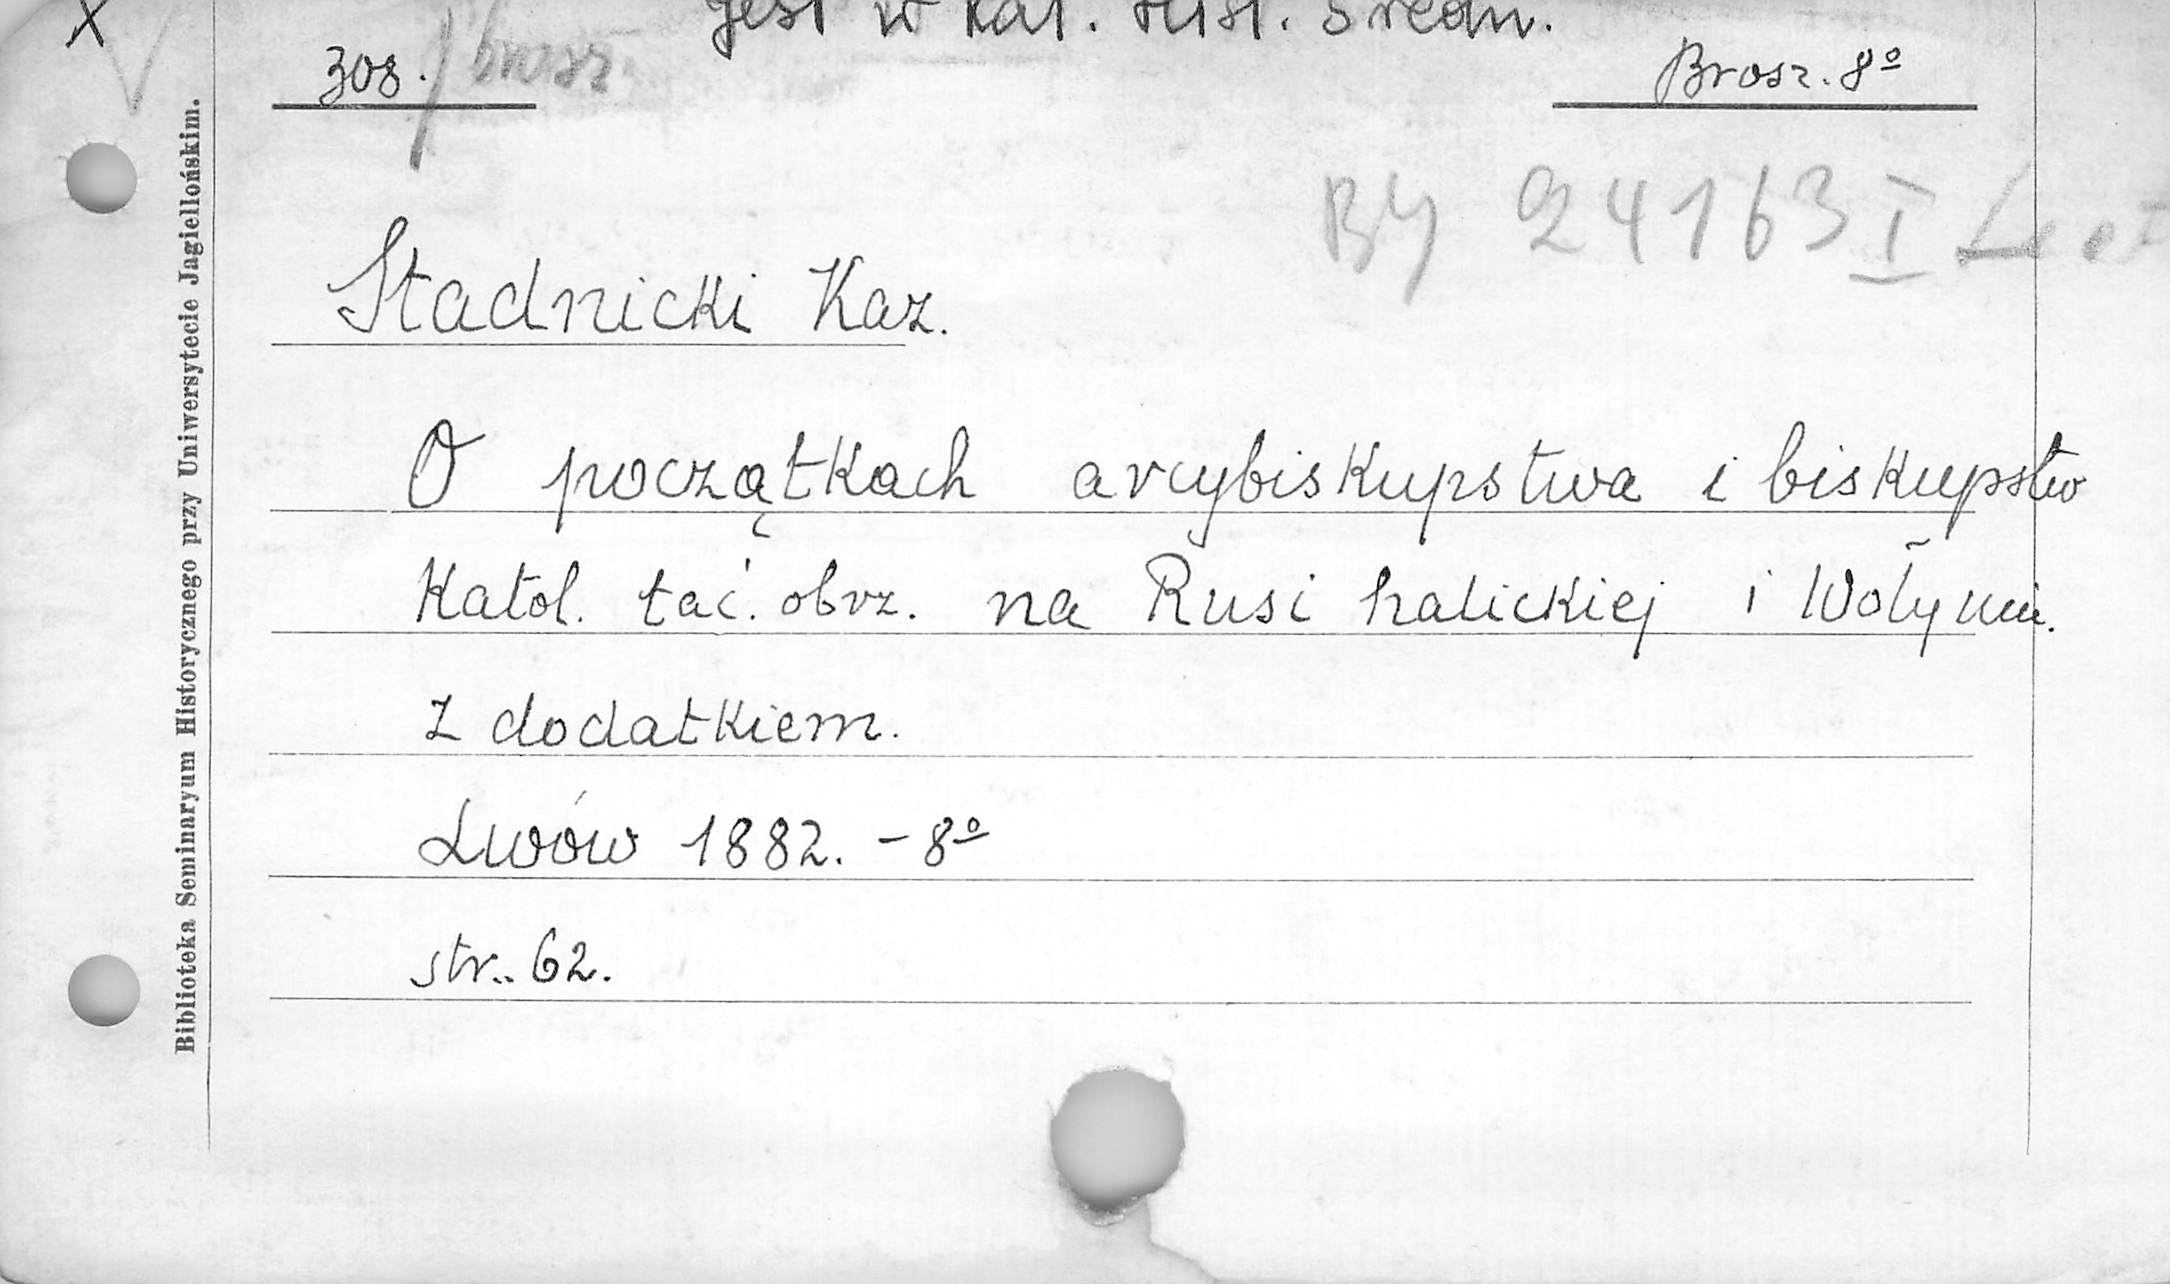 X
Jest w kat. hist. średn.
308. brosz.
Brosz. 8º
BJ 24163 I
Stadnicki Kaz.
O początkach arcybiskupstwa i biskupstw
Katol. łać. obrz. na Rusi halickiej i Wołyniu.
Z dodatkiem.
Lwów 1882. - 8º
str.. 62.
Biblioteka Seminaryum Historycznego przy Uniwersytecie Jagiellońskim.